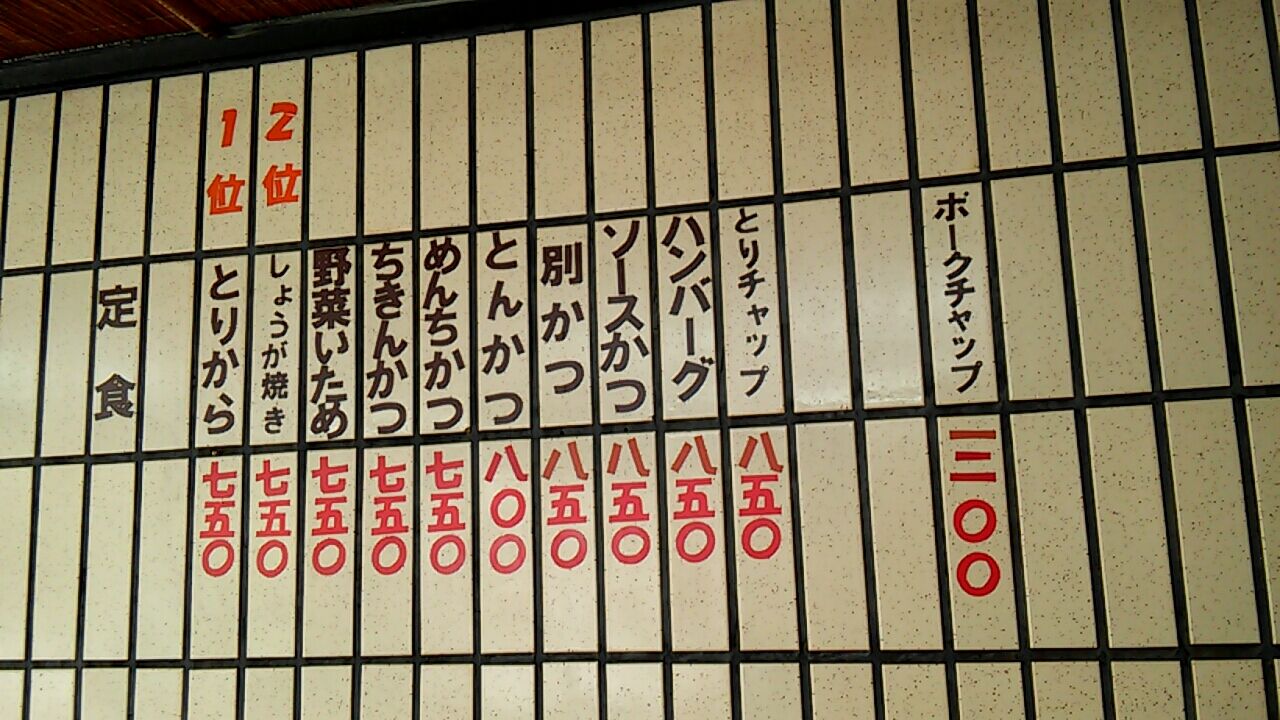 定食
1位 とりから 七五〇
2位 しょうが焼き 七五〇
野菜いため 七五〇
ちきんかつ 七五〇
めんちかつ 七五〇
とんかつ 八〇〇
別かつ 八五〇
ソースかつ 八五〇
ハンバーグ 八五〇
とりチャップ 八五〇
ポークチャップ 一二〇〇